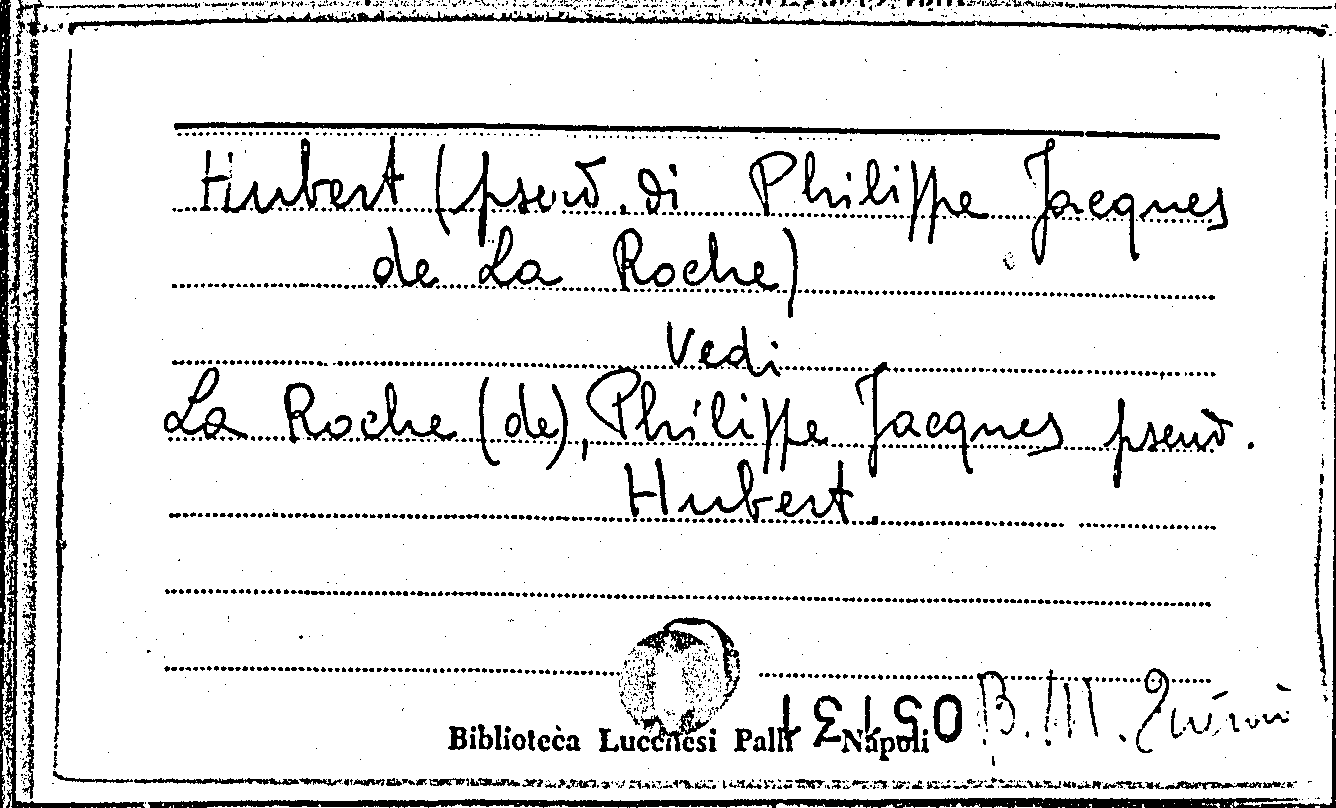 Hubert (pseud. di Philippe Jacques
de La Roche)
Vedi
La Roche (de), Philippe Jacques pseud.
Hubert.
05131
B. M.
Biblioteca Lucchesi Palli Napoli